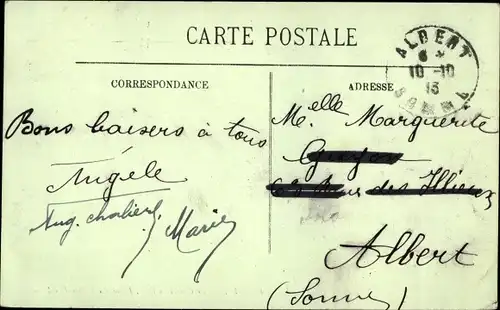 CARTE POSTALE
CORRESPONDANCE
ADRESSE
ALBERT
10-10
13
SOMME
Bons baisers à tous
Angèle
Marie
Melle Marguerite
des
Albert
(Somme)